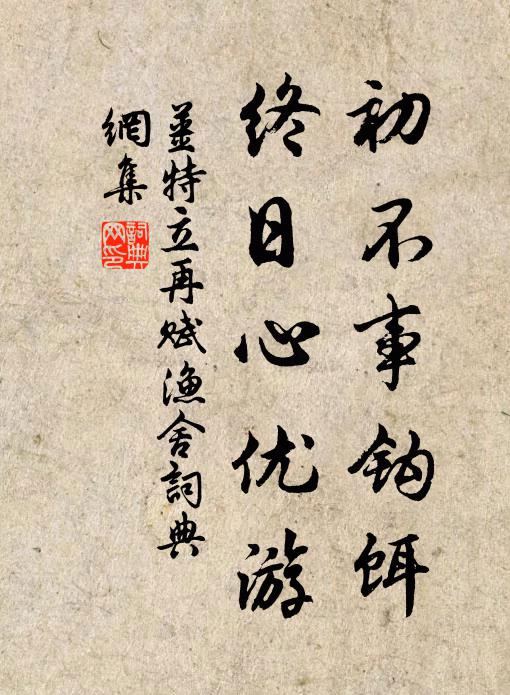 初不事钩饵
终日心优游
姜特立再赋渔舍词典
网集
词典网印